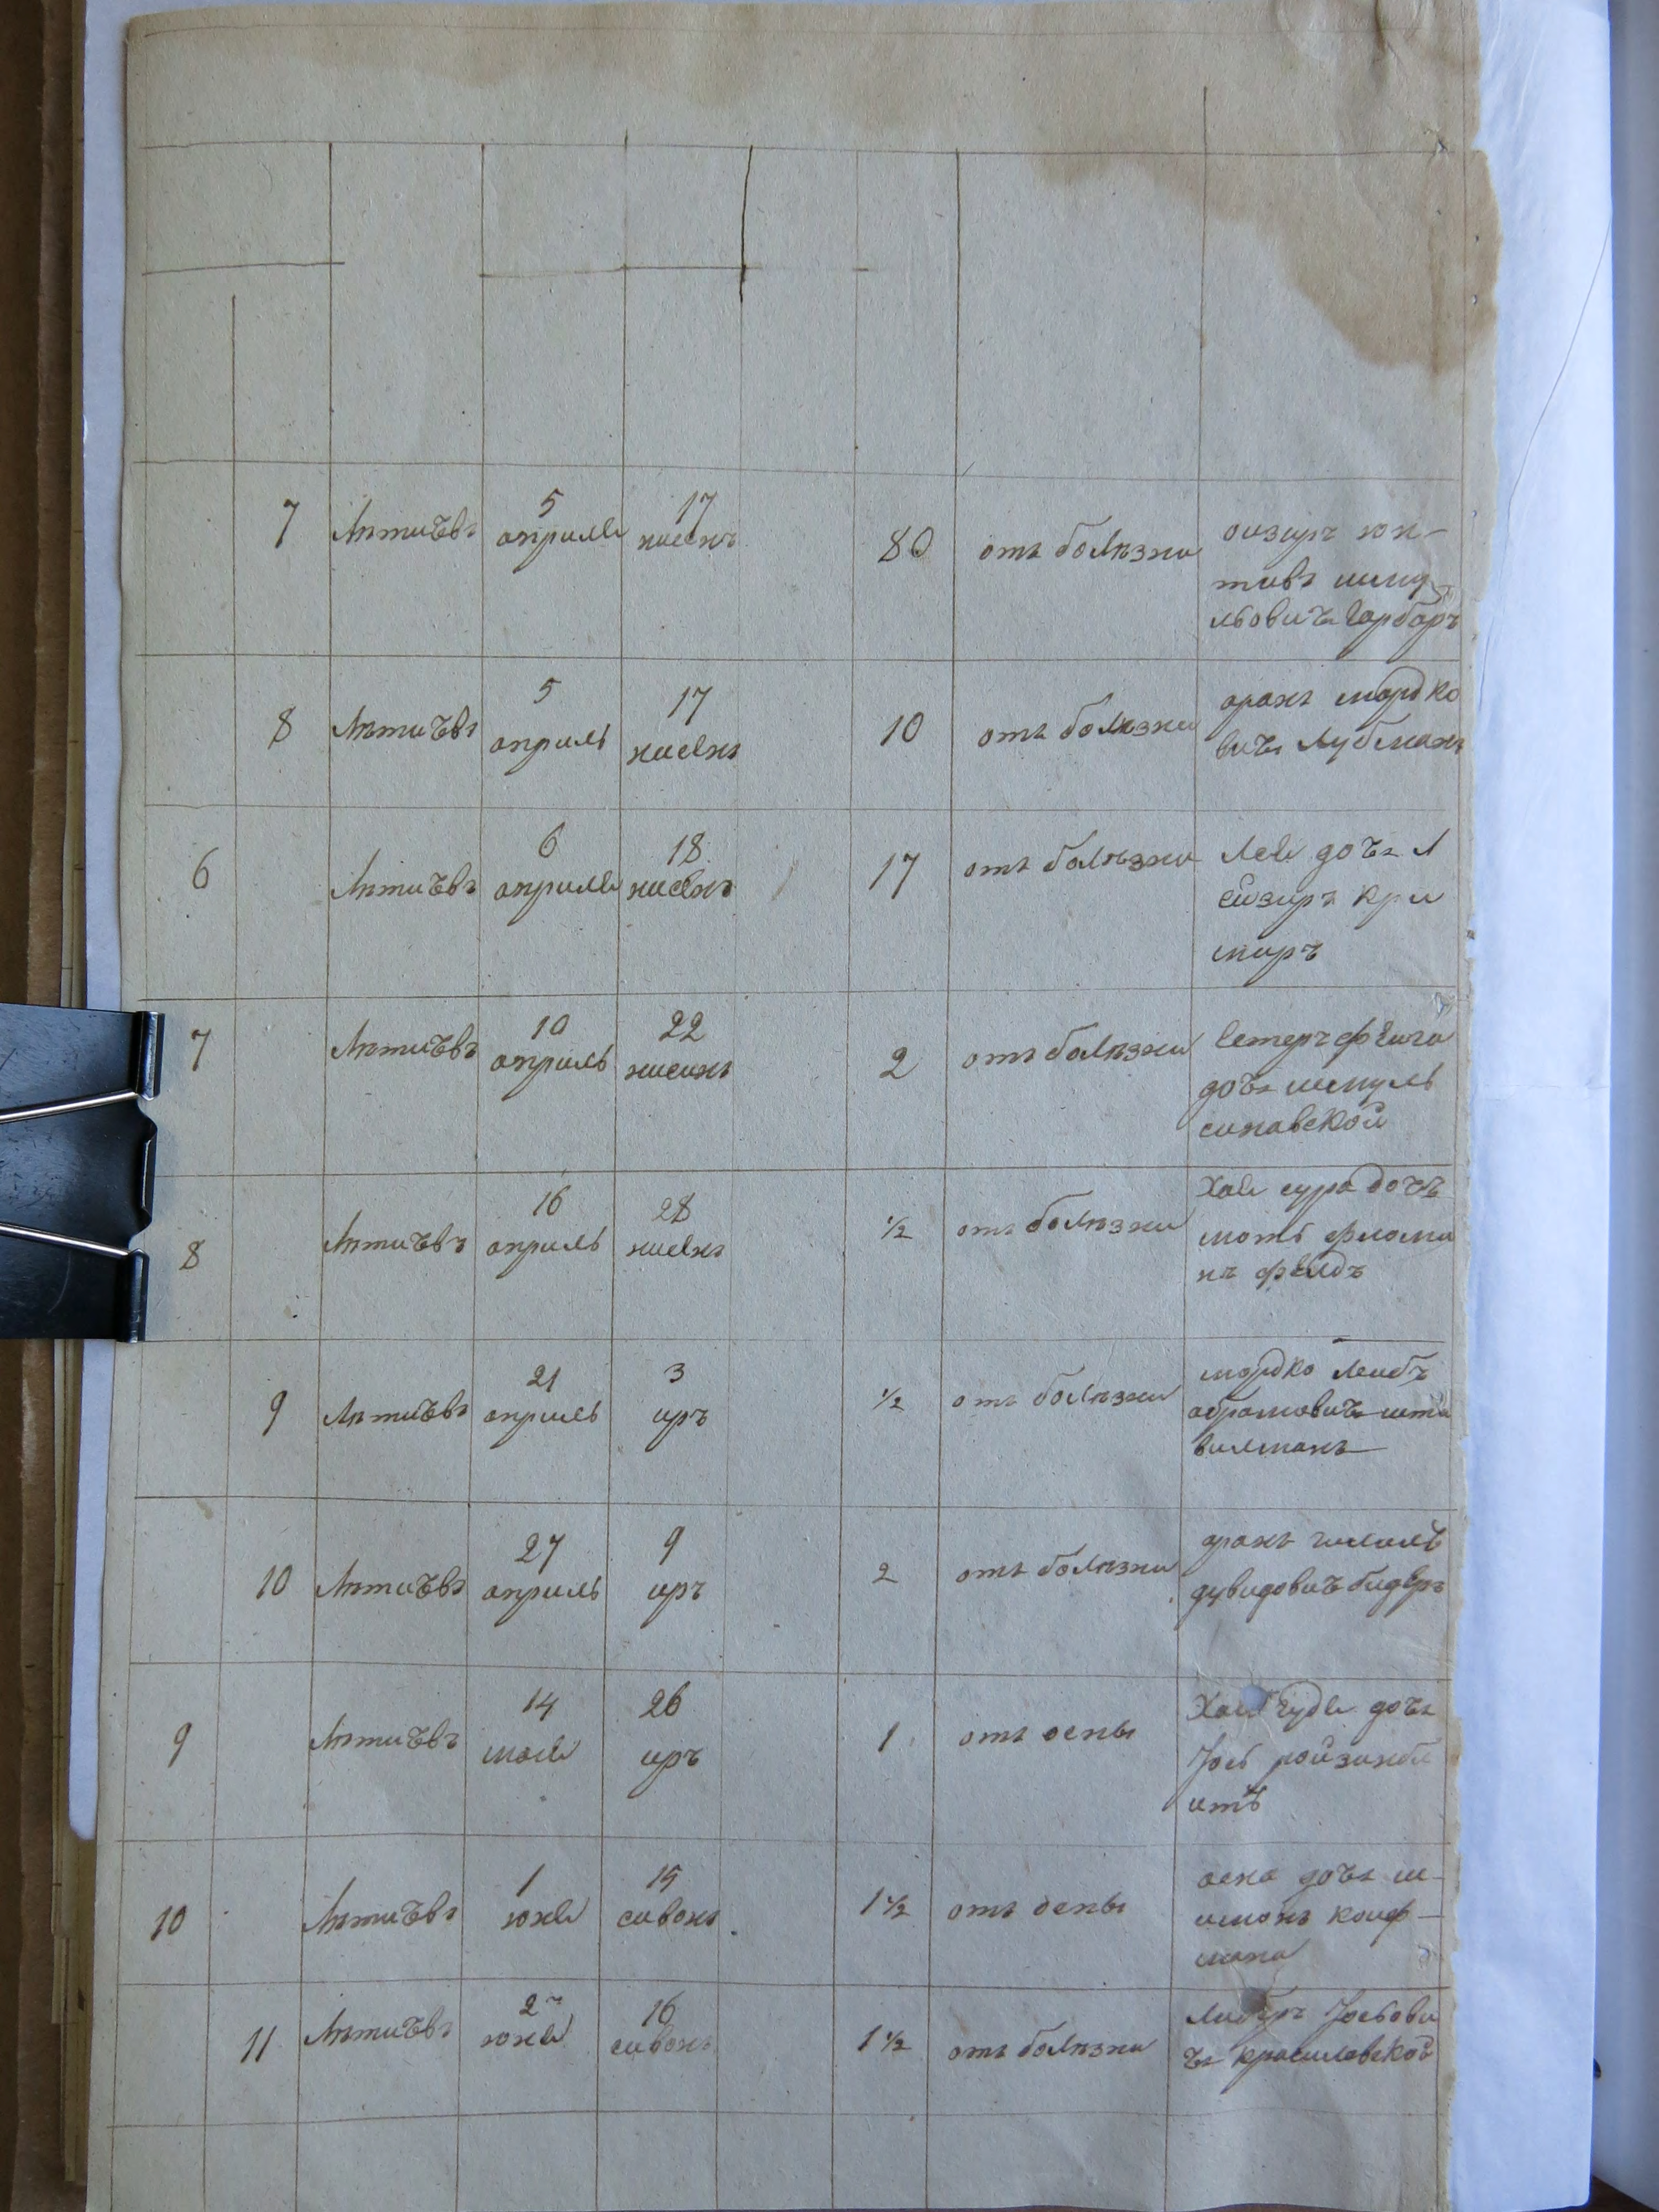 7 Лѣтичевъ 5 априля 17 нисенъ 80 отъ болѣзни оизиръ юн-
тивъ шму
льовичъ Гарбаръ
8 Лѣтичевъ 5 априль 17 нисенъ 10 отъ болѣзни аранъ мордко
вичъ Лубманъ
6 Лѣтичевъ 6 априля 18 нисенъ 17 отъ болѣзни Лея дочъ л
ейзиръ кри
миръ
7 Лѣтичевъ 10 априль 22 нисинъ 2 отъ болѣзни естеръ фейга
дочъ шмуль
синавской
8 Лѣтичевъ 16 априль 28 нисенъ 1/2 отъ болѣзни Хая сура дочъ
моть
нъ фелдъ
9 Лѣтичевъ 21 априль 3 иръ 1/2 отъ болѣзни мордко Лейбъ
абрамовичъ шти
вилманъ
10 Лѣтичевъ 27 априль 9 иръ 2 отъ болѣзни аранъ
дувидовичъ бидеръ
9 Лѣтичевъ 14 мая 26 иръ 1 отъ оспы Хая Гудя дочъ
Іось ройзинбл
итъ
10 Лѣтичевъ 1 юня 15 сивонъ 1 1/2 отъ оспы асна дочъ ш-
имонъ коиф-
мана
11 Лѣтичевъ 2 юня 16 сивонъ 1 1/2 отъ болѣзни Либеръ Іосьови
чъ красиловской